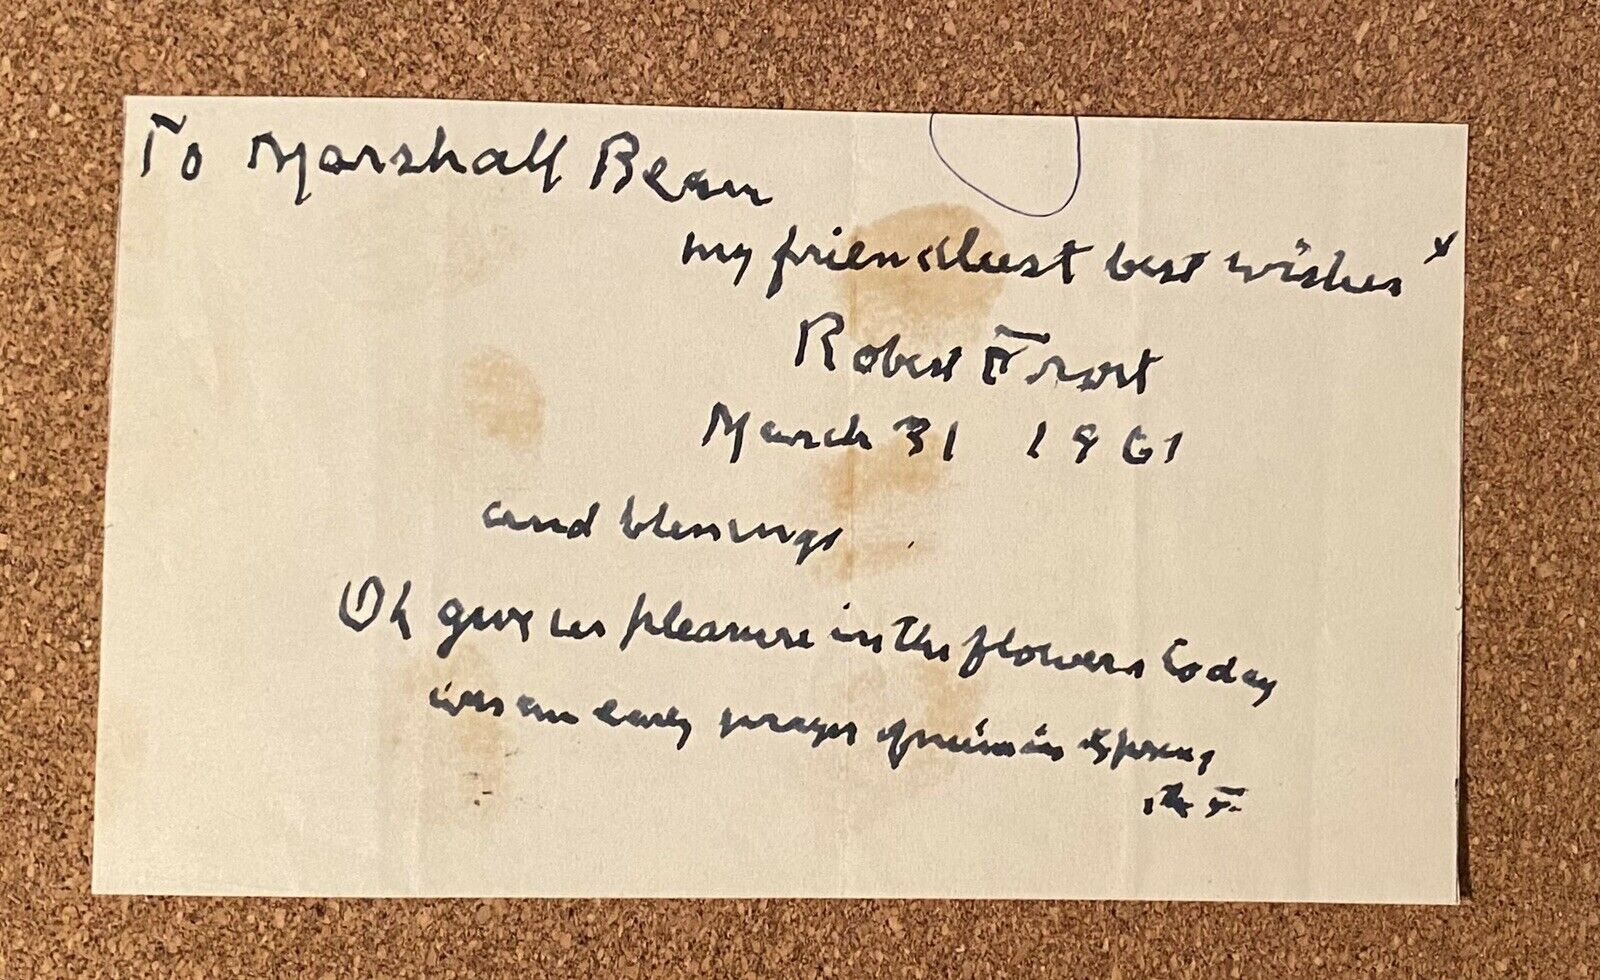 To Marshall Bean
my friendliest best wishes x
Robert Frost
March 31 1961
and blessings
Oh give us pleasure in the flowers today
was an early prayer of mine in Spring
R F